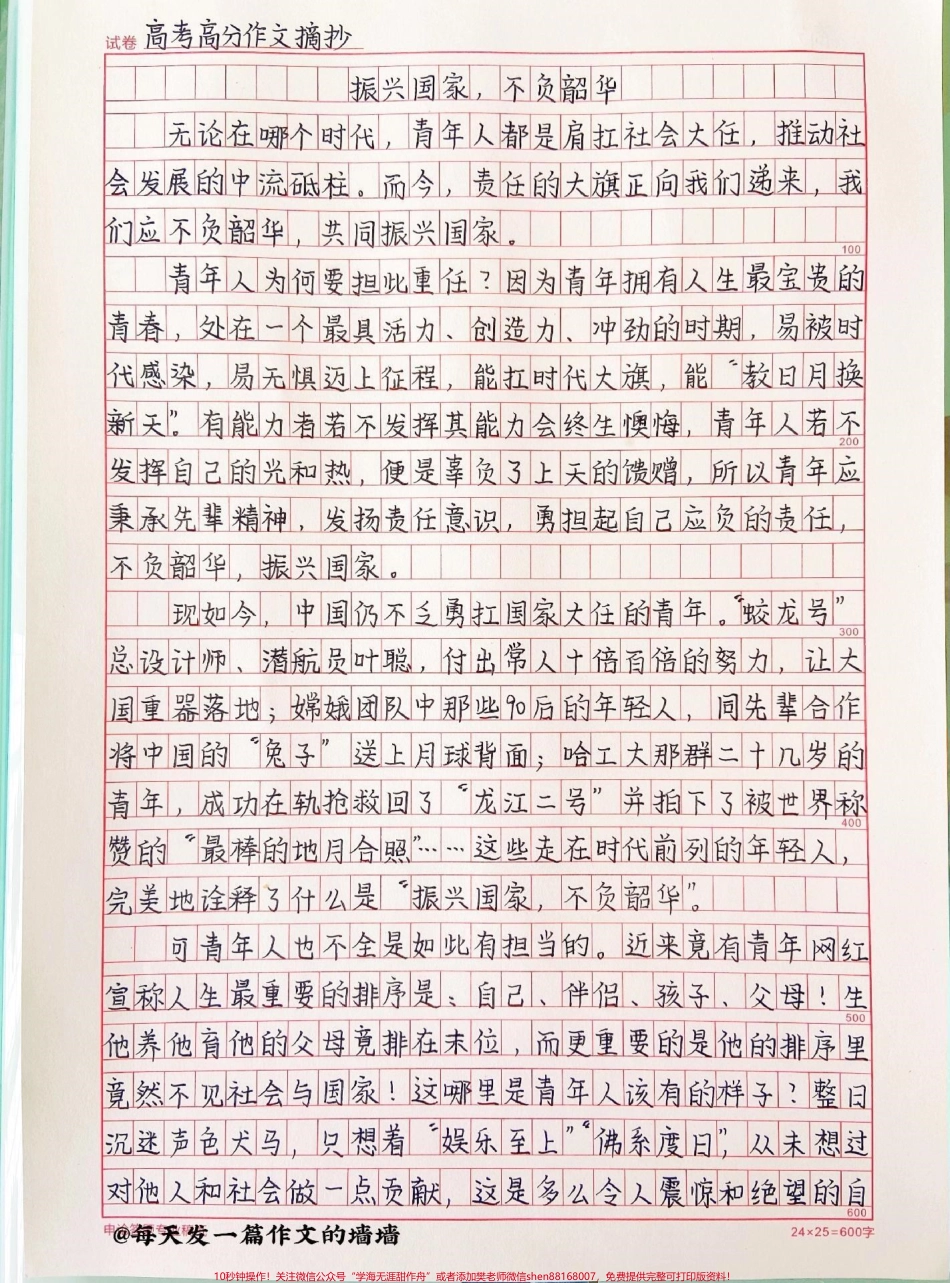 试卷 高考高分作文摘抄
振兴国家，不负韶华
无论在哪个时代，青年人都是肩扛社会大任，推动社
会发展的中流砥柱。而今，责任的大旗正向我们递来，我
们应不负韶华，共同振兴国家。
100
青年人为何要担此重任？因为青年拥有人生最宝贵的
青春，处在一个最具活力、创造力、冲劲的时期，易被时
代感染，易无惧迈上征程，能扛时代大旗，能“教日月换
新天”。有能力者若不发挥其能力会终生懊悔，青年人若不
200
发挥自己的光和热，便是辜负了上天的馈赠，所以青年应
秉承先辈精神，发扬责任意识，勇担起自己应负的责任，
不负韶华，振兴国家。
现如今，中国仍不乏勇扛国家大任的青年。“蛟龙号”
300
总设计师、潜航员叶聪，付出常人十倍百倍的努力，让大
国重器落地；嫦娥团队中那些90后的年轻人，同先辈合作
将中国的“兔子”送上月球背面；哈工大那群二十几岁的
青年，成功在轨抢救回了“龙江二号”并拍下了被世界称
400
赞的“最棒的地月合照”……这些走在时代前列的年轻人，
完美地诠释了什么是“振兴国家，不负韶华”。
可青年人也不全是如此有担当的。近来竟有青年网红
宣称人生最重要的排序是：自己、伴侣、孩子、父母！生
500
他养他育他的父母竟排在末位，而更重要的是他的排序里
竟然不见社会与国家！这哪里是青年人该有的样子？整日
沉迷声色犬马，只想着“娱乐至上”“佛系度日”，从未想过
对他人和社会做一点贡献，这是多么令人震惊和绝望的自
600
@每天发一篇作文的墙墙
24×25=600字
10秒钟操作！关注微信公众号“学海无涯甜作舟”或者添加樊老师微信shen88168007，免费提供完整可打印版资料！